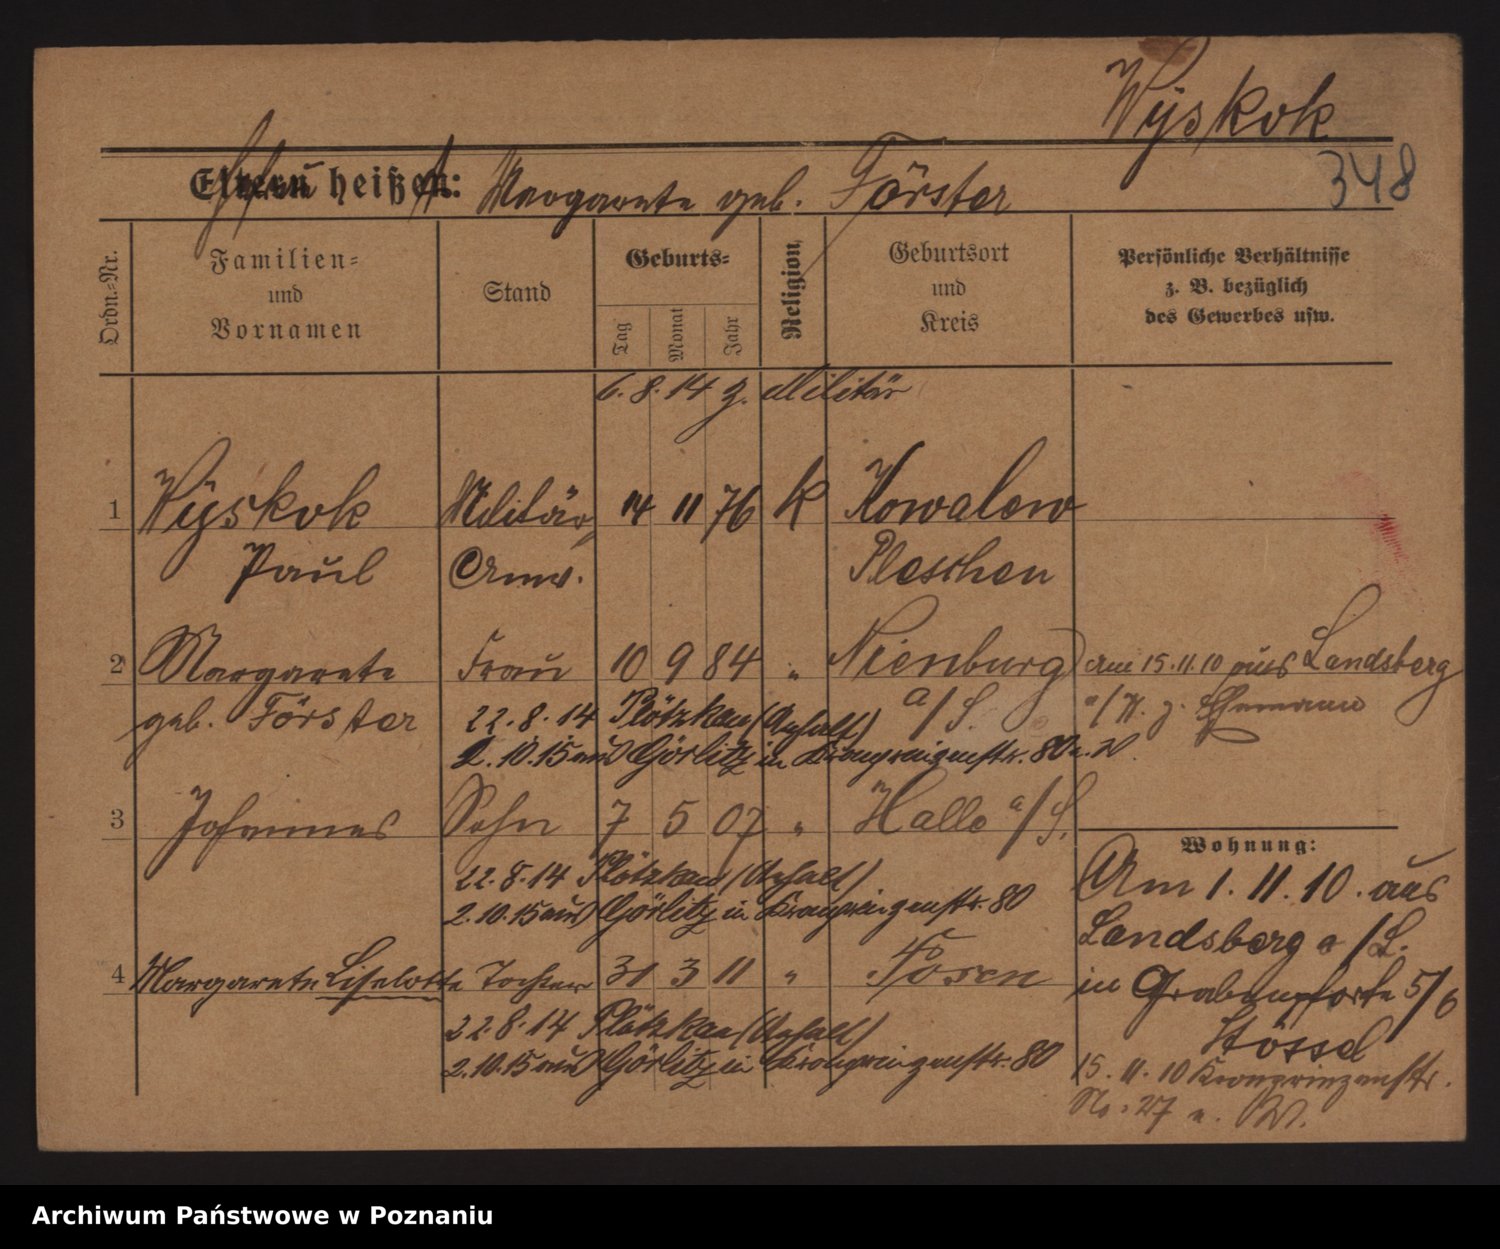 Wyskok
348
Eltern heißen: Frau heißt Margarete geb. Förster
Ordn.-Nr.
Familien-
und
Vornamen
Stand
Geburts-
Tag
Monat
Jahr
Religion
Geburtsort
und
Kreis
Persönliche Verhältnisse
z. B. bezüglich
des Gewerbes usw.
6.8.14 z. Militär
1 Wyskok Militär 14 11 76 k Kowalew
Paul Anw. Pleschen
2 Margarete Frau 10 9 84 " Nienburg
a/S.
am 15.11.10 aus Landsberg
a/W. z. Ehemann
geb. Förster 22.8.14 Plötzkau (Anhalt)
2.10.15 aus Görlitz in Kronprinzenstr. 80 n. W.
3 Johannes Sohn 7 5 07 " Halle a/S.
22.8.14 Plötzkau (Anhalt)
2.10.15 aus Görlitz in Kronprinzenstr. 80
4 Margarete Liselotte Tochter 31 3 11 " Posen
22.8.14 Plötzkau (Anhalt)
2.10.15 aus Görlitz in Kronprinzenstr. 80
Wohnung:
Am 1.11.10. aus
Landsberg a/L.
in Grabenpforte 5/6
Stössel
15.11.10 Kronprinzenstr.
No. 27 n. W.
Archiwum Państwowe w Poznaniu